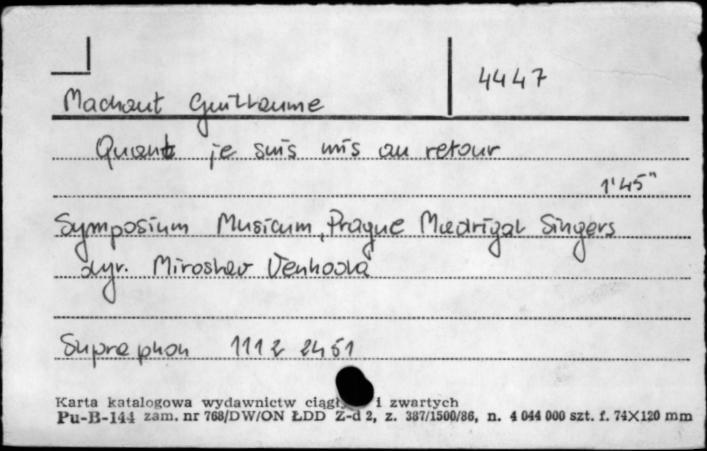 4447
Machaut Guillaume
Quant je suis mis au retour
1'45"
Symposium Musicum, Prague Madrigal Singers
dyr. Miroslav Venhoda
Supraphon 1112 2451
Karta katalogowa wydawnictw ciągły i zwartych
Pu-B-144 zam. nr 768/DW/ON ŁDD Z-d 2, z. 387/1500/86, n. 4 044 000 szt. f. 74X120 mm